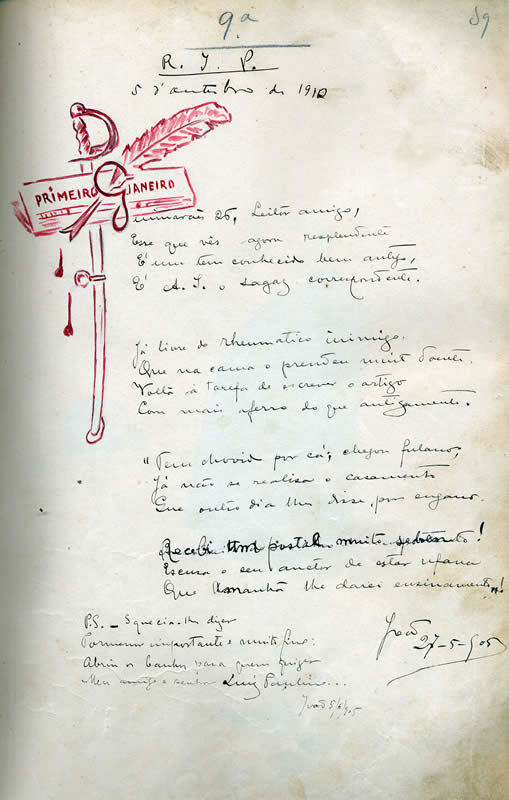 9.ª
59
R. I. P.
5 d'outubro de 1910
PRIMEIRO JANEIRO
Guimarães 26, Leitor amigo,
Esse que vês agora resplendente
É um teu conhecido bem antigo,
É A. I. o sagaz correspondente.
Já livre do rheumatico inimigo
Que na cama o prendeu muit doente
Volta á tarefa de escrever o artigo
Com mais aferro do que antigamente.
"Tem chovido por cá; chegou fulano,
Já não se realisa o casamento
Que outro dia lhe disse, por engano.
Recebi um postal muito
Escusa o seu auctor de estar ufano
Que Amanhã lhe darei ensinamento"!
P.S. — Esquecia-lhe dizer
Pormenor importante e muito fino:
Abriu os banhos para quem quizer
Meu amigo e senhor Luiz
João
27-5-905
João 5/6/905